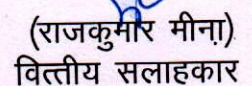 (राजकुमार मीना)
वित्तीय सलाहकार